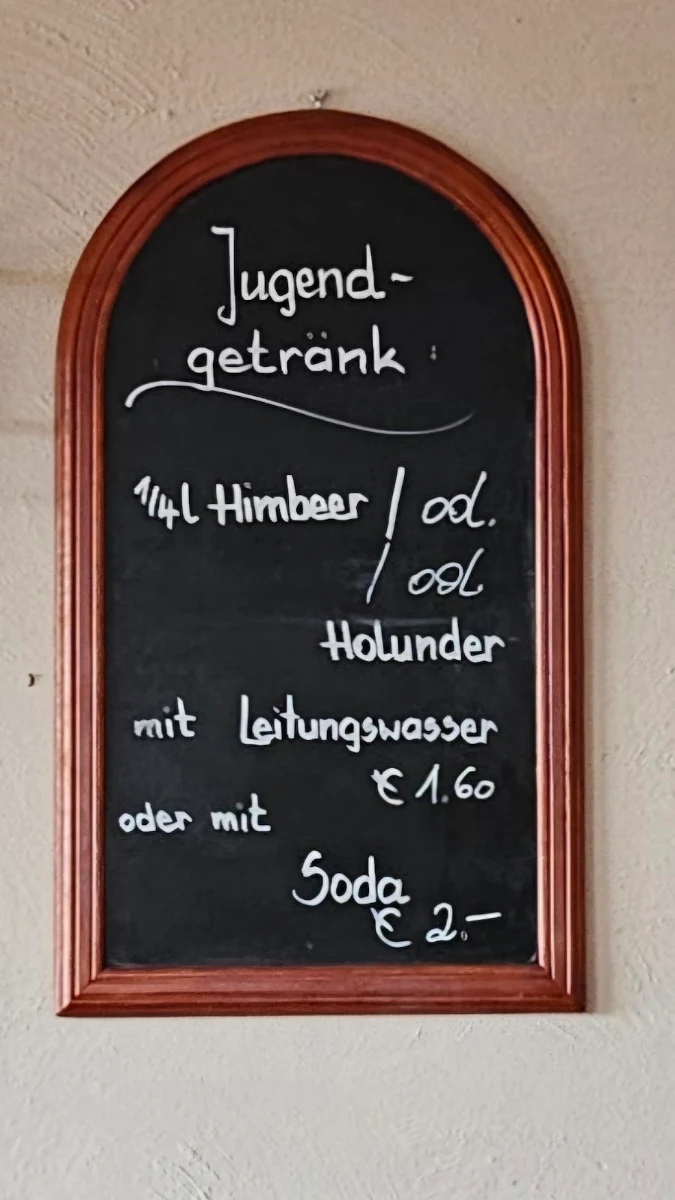 Jugend-
getränk :
1/4l Himbeer / od.
/ od.
Holunder
mit Leitungswasser
€ 1.60
oder mit
Soda
€ 2.—